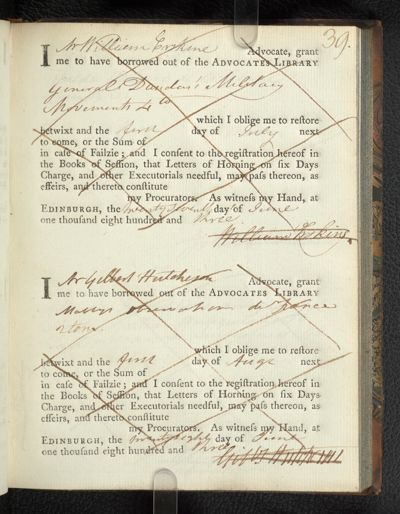 39.
I Mr William Erskine Advocate, grant
me to have borrowed out of the ADVOCATES LIBRARY
General Dundas's Military
Movements 4to
which I oblige me to reſtore
betwixt and the first day of July next
to come, or the Sum of
in caſe of Failzie; and I conſent to the regiſtration hereof in
the Books of Seſſion, that Letters of Horning on ſix Days
Charge, and other Executorials needful, may paſs thereon, as
effeirs, and thereto conſtitute
my Procurators. As witneſs my Hand, at
EDINBURGH, the day of June
one thouſand eight hundred and three.
William Erskine.
I Mr Gilbert Hutcheson Advocate, grant
me to have borrowed out of the ADVOCATES LIBRARY
observations de france
2 tom.
which I oblige me to reſtore
betwixt and the first day of Augt next
to come, or the Sum of
in caſe of Failzie; and I conſent to the regiſtration hereof in
the Books of Seſſion, that Letters of Horning on ſix Days
Charge, and other Executorials needful, may paſs thereon, as
effeirs, and thereto conſtitute
my Procurators. As witneſs my Hand, at
EDINBURGH, the twenty eighth day of June
one thouſand eight hundred and three